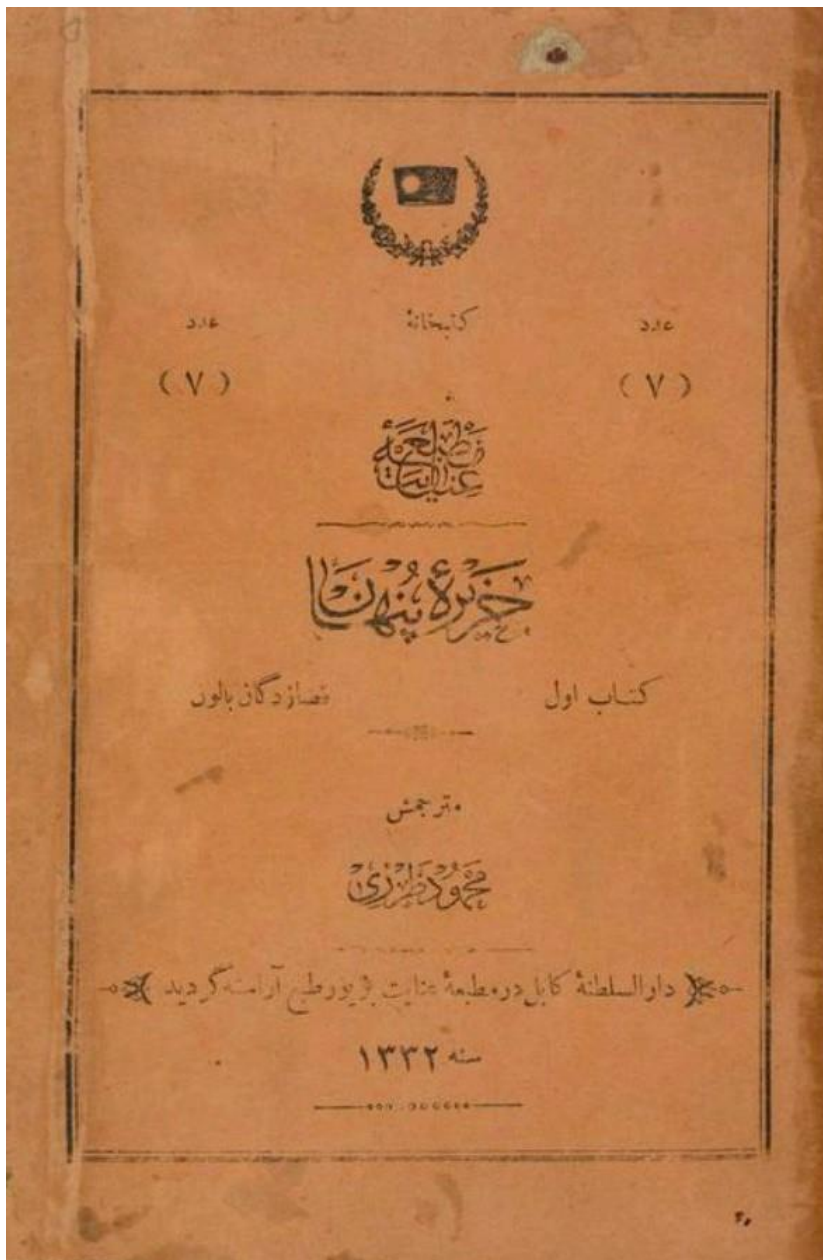 عدد کتبخانهٔ عدد
(۷) (۷)
مطبعهٔ
عنایت
جزیرهٔ پنهان
کتاب اول قضازدگان بالون
مترجمش
محمود طرزی
دارالسلطنهٔ کابل در مطبعهٔ عنایت بزیور طبع آراسته گردید
سنه ۱۳۳۲